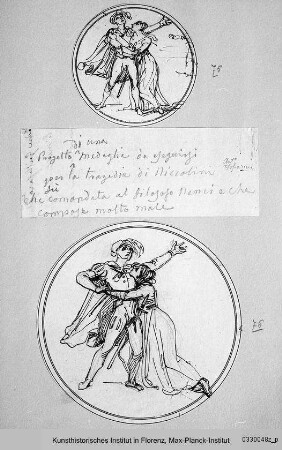 78
Di una
Progetto Medaglia da eseguirsi
per la tragedia di Niccolini
di
che comandata al filosofo Nenci e che
compose molto male
78
Kunsthistorisches Institut in Florenz, Max-Planck-Institut 0330048z_p